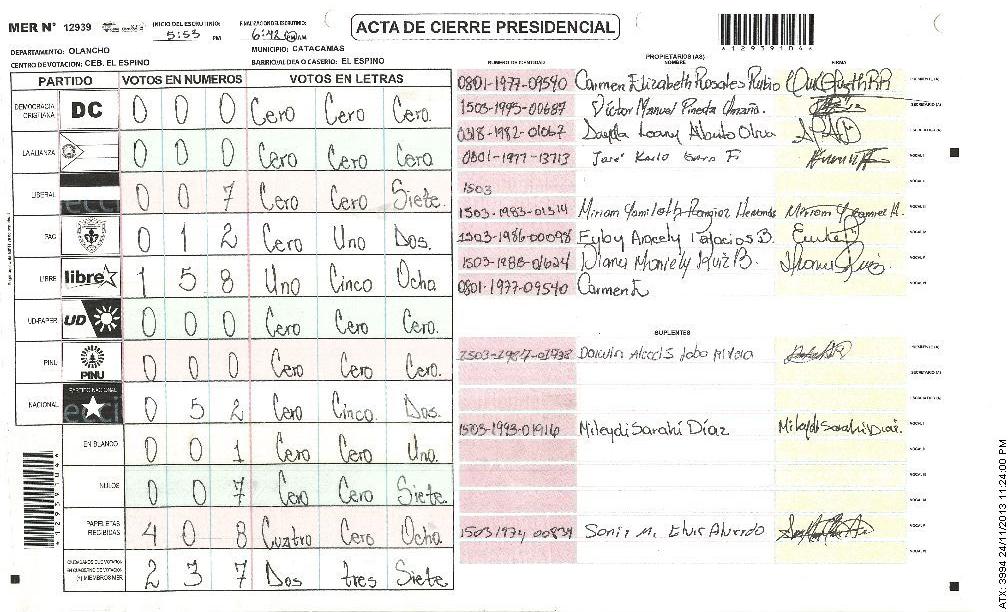 MER N° 12939
INICIO DEL ESCRUTINIO:
5:53 PM
FINALIZACION ESCRUTINIO:
6:42 PM AM
ACTA DE CIERRE PRESIDENCIAL
*12939104*
DEPARTAMENTO: OLANCHO
MUNICIPIO: CATACAMAS
CENTRO DE VOTACION: CEB. EL ESPINO
BARRIO/ALDEA O CASERIO: EL ESPINO
PARTIDO VOTOS EN NUMEROS VOTOS EN LETRAS
DEMOCRACIA CRISTIANA DC 0 0 0 Cero Cero Cero.
LA ALIANZA 0 0 0 Cero Cero Cero
LIBERAL 0 0 7 Cero Cero Siete.
PAC 0 1 2 Cero Uno Dos.
LIBRE libre 1 5 8 Uno Cinco Ocho
UD-FAPER UD 0 0 0 Cero Cero Cero.
PINU PINU 0 0 0 Cero Cero Cero.
NACIONAL PARTIDO NACIONAL 0 5 2 Cero Cinco. Dos.
EN BLANCO 0 0 1 Cero Cero Uno.
NULOS 0 0 7 Cero Cero Siete.
PAPELETAS RECIBIDAS 4 0 8 Cuatro Cero Ocho
CIUDADANOS QUE VOTARON EN CUADERNO DE VOTACION (+) MIEMBROS MER 2 3 7 Dos tres Siete
PROPIETARIOS (AS)
NUMERO DE IDENTIDAD NOMBRE FIRMA
0801-1977-09540 Carmen Elizabeth Rosales Rubio
1503-1995-00687 Víctor Manuel Pineda
0318-1982-01067
0801-1977-13713 José Karlo
1503
1503-1983-01314 Miriam Yamileth
1503-1986-00098 Eyby Aracely Palacios B.
1503-1988-01624 Diana Mariely Ruiz B.
0801-1977-09540 Carmen E
SUPLENTES
Darwin Alexis
1503-1993-01916 Mileydi Sarahí Díaz Mileydi Sarahi Diaz.
1503 1974 00834 Sonia M.
ATX: 3994 24/11/2013 11:24:00 PM